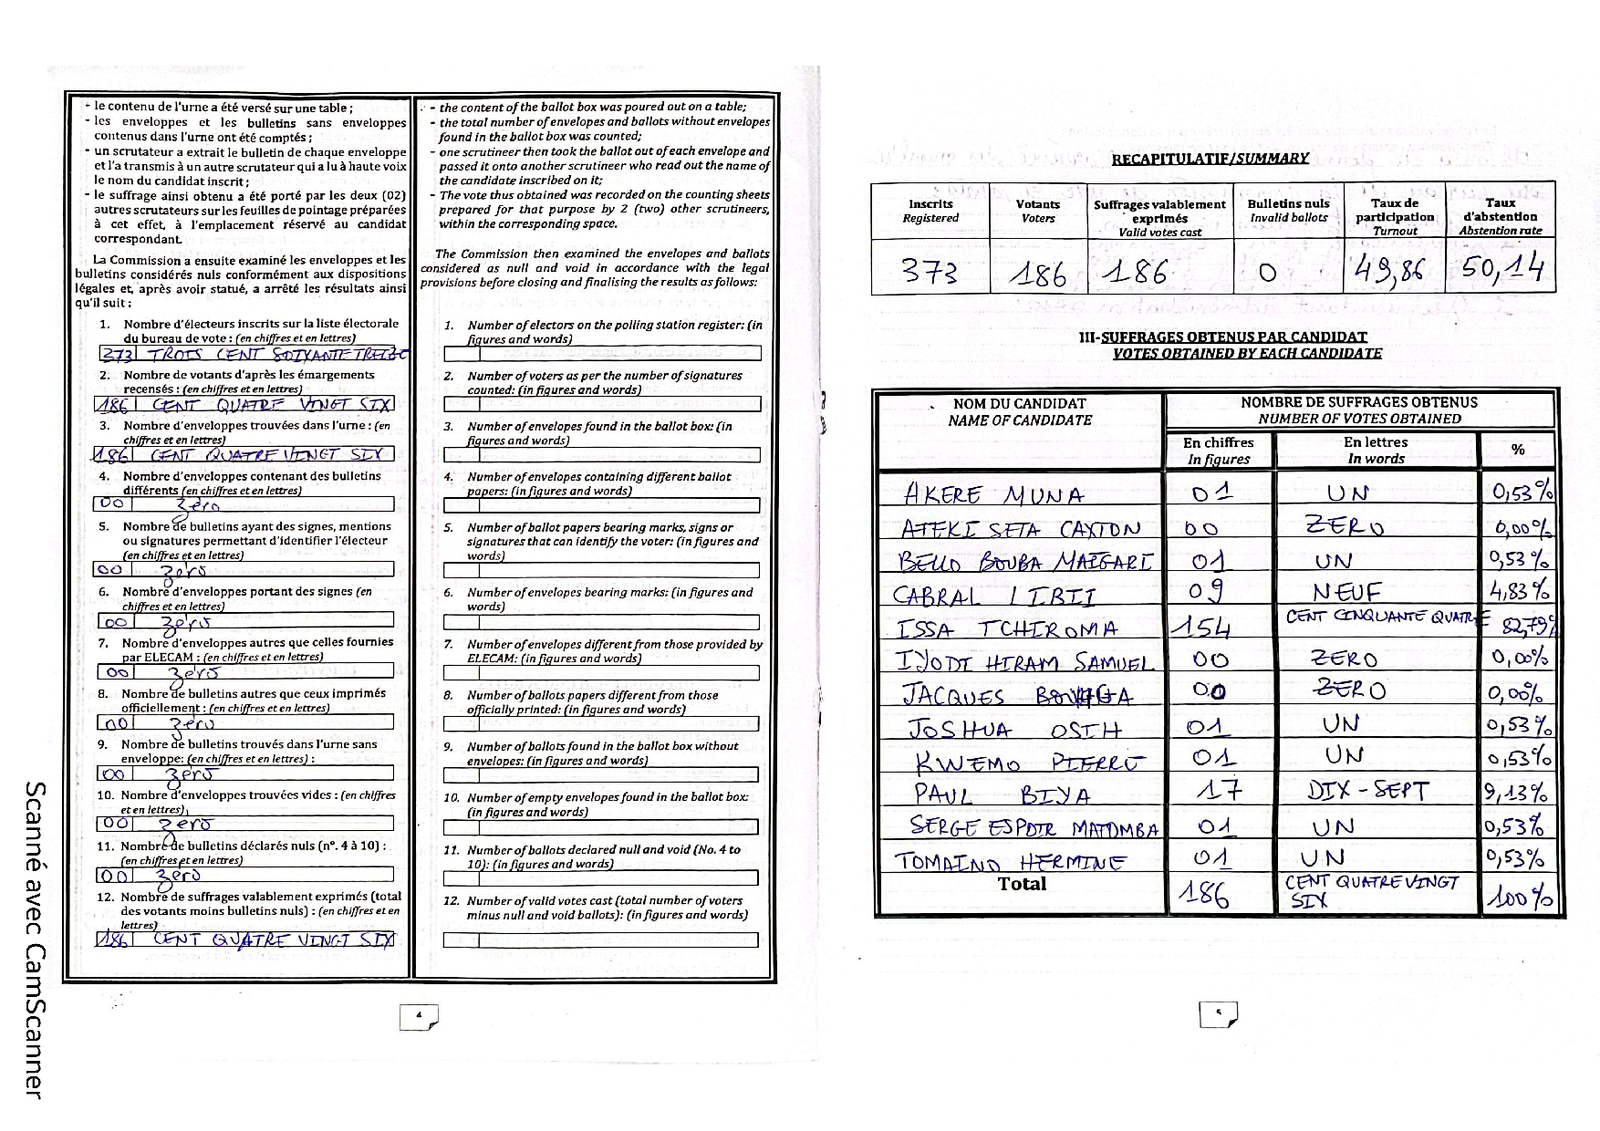 - le contenu de l'urne a été versé sur une table ;
- les enveloppes et les bulletins sans enveloppes
contenus dans l'urne ont été comptés ;
- un scrutateur a extrait le bulletin de chaque enveloppe
et l'a transmis à un autre scrutateur qui a lu à haute voix
le nom du candidat inscrit ;
- le suffrage ainsi obtenu a été porté par les deux (02)
autres scrutateurs sur les feuilles de pointage préparées
à cet effet, à l'emplacement réservé au candidat
correspondant.
La Commission a ensuite examiné les enveloppes et les
bulletins considérés nuls conformément aux dispositions
légales et, après avoir statué, a arrêté les résultats ainsi
qu'il suit :
1. Nombre d'électeurs inscrits sur la liste électorale
du bureau de vote : (en chiffres et en lettres)
373 TROIS CENT SOIXANTE TREIZE
2. Nombre de votants d'après les émargements
recensés : (en chiffres et en lettres)
186 CENT QUATRE VINGT SIX
3. Nombre d'enveloppes trouvées dans l'urne : (en
chiffres et en lettres)
186 CENT QUATRE VINGT SIX
4. Nombre d'enveloppes contenant des bulletins
différents (en chiffres et en lettres)
00 Zéro
5. Nombre de bulletins ayant des signes, mentions
ou signatures permettant d'identifier l'électeur
(en chiffres et en lettres)
00 zéro
6. Nombre d'enveloppes portant des signes (en
chiffres et en lettres)
00 zéro
7. Nombre d'enveloppes autres que celles fournies
par ELECAM : (en chiffres et en lettres)
00 zéro
8. Nombre de bulletins autres que ceux imprimés
officiellement : (en chiffres et en lettres)
00 zéro
9. Nombre de bulletins trouvés dans l'urne sans
enveloppe: (en chiffres et en lettres) :
00 zéro
10. Nombre d'enveloppes trouvées vides : (en chiffres
et en lettres),
00 zéro
11. Nombre de bulletins déclarés nuls (n°. 4 à 10) :
(en chiffres et en lettres)
00 zéro
12. Nombre de suffrages valablement exprimés (total
des votants moins bulletins nuls) : (en chiffres et en
lettres)
186 CENT QUATRE VINGT SIX
- the content of the ballot box was poured out on a table;
- the total number of envelopes and ballots without envelopes
found in the ballot box was counted;
- one scrutineer then took the ballot out of each envelope and
passed it onto another scrutineer who read out the name of
the candidate inscribed on it;
- The vote thus obtained was recorded on the counting sheets
prepared for that purpose by 2 (two) other scrutineers,
within the corresponding space.
The Commission then examined the envelopes and ballots
considered as null and void in accordance with the legal
provisions before closing and finalising the results as follows:
1. Number of electors on the polling station register: (in
figures and words)
2. Number of voters as per the number of signatures
counted: (in figures and words)
3. Number of envelopes found in the ballot box: (in
figures and words)
4. Number of envelopes containing different ballot
papers: (in figures and words)
5. Number of ballot papers bearing marks, signs or
signatures that can identify the voter: (in figures and
words)
6. Number of envelopes bearing marks: (in figures and
words)
7. Number of envelopes different from those provided by
ELECAM: (in figures and words)
8. Number of ballots papers different from those
officially printed: (in figures and words)
9. Number of ballots found in the ballot box without
envelopes: (in figures and words)
10. Number of empty envelopes found in the ballot box:
(in figures and words)
11. Number of ballots declared null and void (No. 4 to
10): (in figures and words)
12. Number of valid votes cast (total number of voters
minus null and void ballots): (in figures and words)
4
Scanné avec CamScanner
RECAPITULATIF/SUMMARY
Inscrits Registered
Votants Voters
Suffrages valablement exprimés Valid votes cast
Bulletins nuls Invalid ballots
Taux de participation Turnout
Taux d'abstention Abstention rate
373 186 186 0 49,86 50,14
III-SUFFRAGES OBTENUS PAR CANDIDAT
VOTES OBTAINED BY EACH CANDIDATE
NOM DU CANDIDAT
NAME OF CANDIDATE
NOMBRE DE SUFFRAGES OBTENUS
NUMBER OF VOTES OBTAINED
En chiffres In figures
En lettres In words
%
AKERE MUNA 01 UN 0,53%
ATEKI SETA CAXTON 00 ZERO 0,00%
BELLO BOUBA MAIGARI 01 UN 0,53%
CABRAL LIBII 09 NEUF 4,83%
ISSA TCHIROMA 154 CENT CINQUANTE QUATRE 82,79%
IYODI HIRAM SAMUEL 00 ZERO 0,00%
JACQUES BOUHGA 00 ZERO 0,00%
JOSHUA OSIH 01 UN 0,53%
KWEMO PIERRE 01 UN 0,53%
PAUL BIYA 17 DIX-SEPT 9,13%
SERGE ESPOIR MATOMBA 01 UN 0,53%
TOMAINO HERMINE 01 UN 0,53%
Total 186 CENT QUATRE VINGT SIX 100%
5